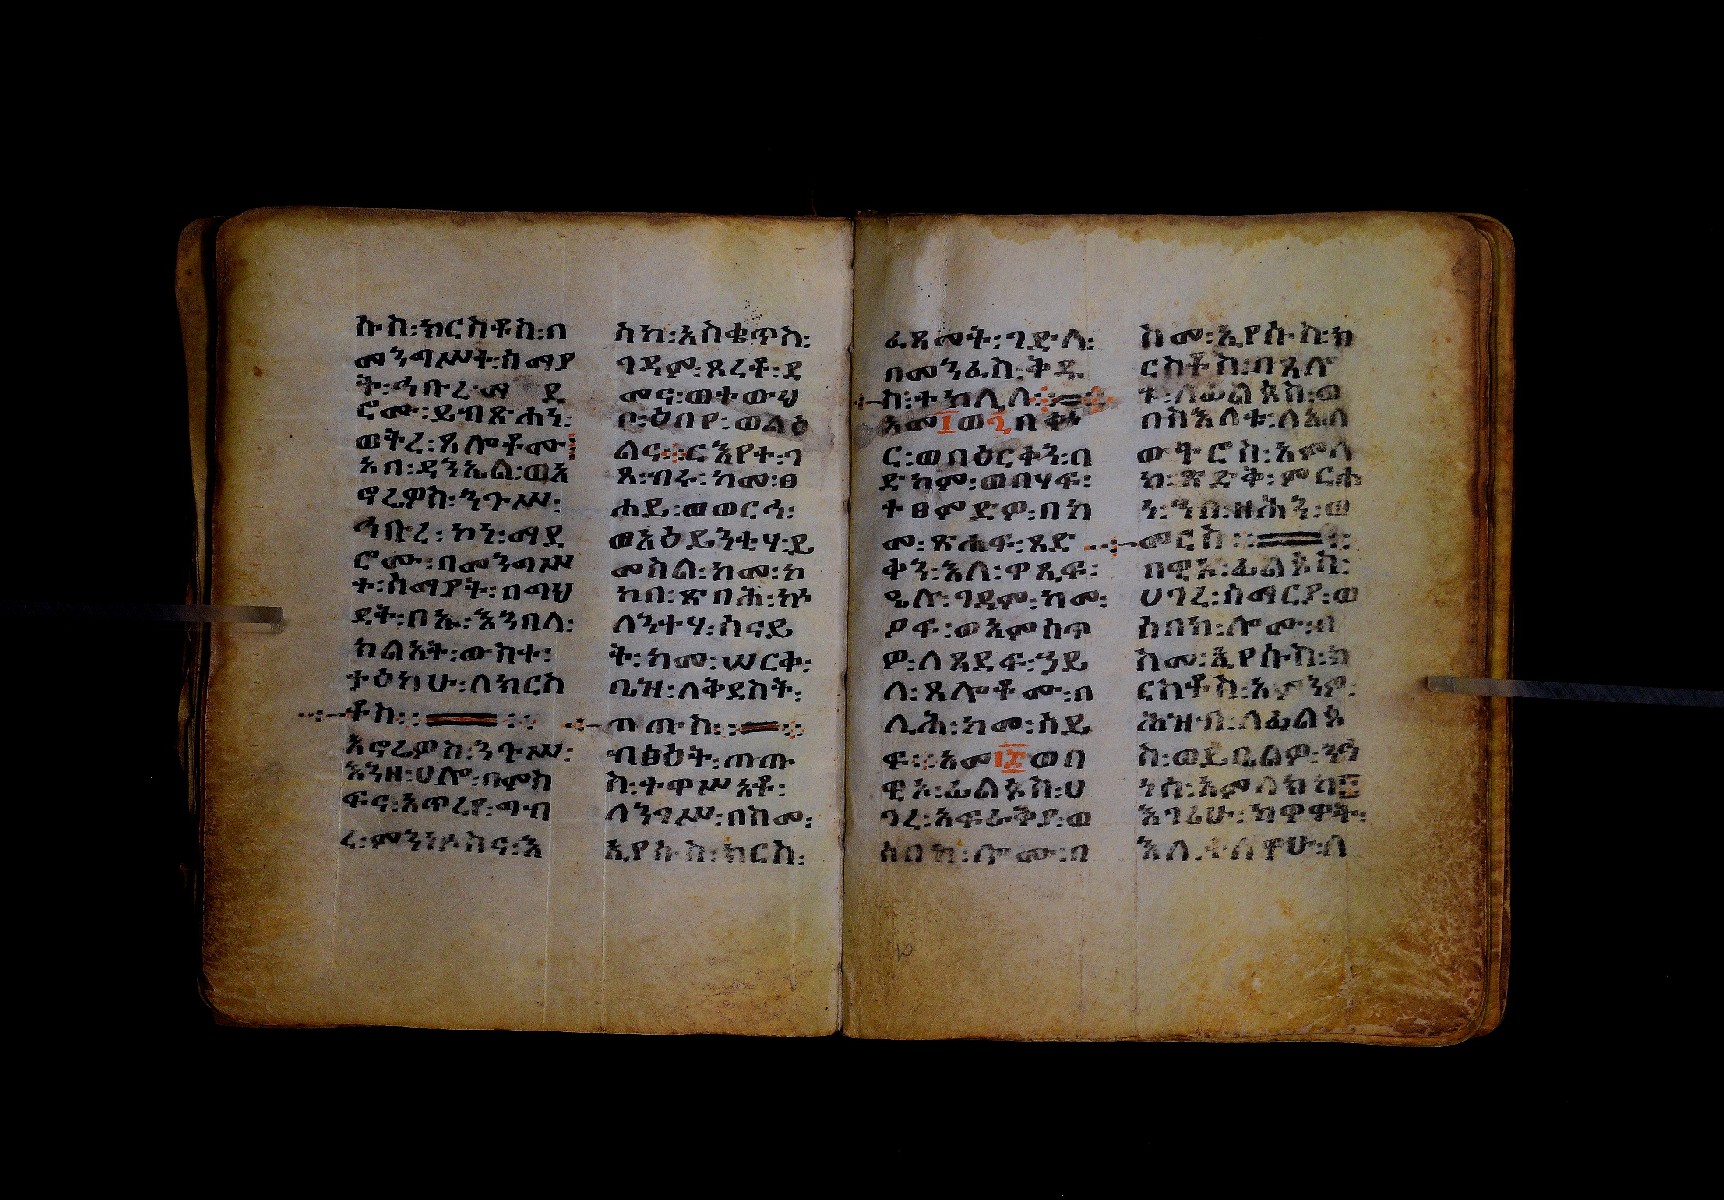 ሱስ፡ክርስቶስ፡በ
መንግሥት፡ሰማያ
ት፡ኅቡረ፡ማ ደ
ሮሙ፡ይብጽሐን፡
ወትረ፡ጸሎቶሙ፡
አበ፡ዳንኤል፡ወአ
ኖሬዎስ፡ንጉሥ፡
ኅቡረ፡ኮነ፡ማደ
ሮሙ፡በመንግሥ
ተ፡ሰማያት፡በማህ
ደት፡በኡ፡እንበለ፡
ክልአት፡ውስተ፡
ተዕክሁ፡ለክርስ
ቶስ፡
አኖሬዎስ፡ንጉሥ፡
እንዘ፡ሀሎ፡በምስ
ፍና፡አጥረየ፡ግብ
ረ፡ምንኵስና፡እ
ስከ፡አስቄጥስ፡
ገዳም፡ጸረቶ፡ደ
መና፡ወተውህ
ቦ፡ዕበየ፡ወልዕ
ልና፡ርእየተ፡ገ
ጹ፡ብሩ፡ከመ፡ፀ
ሐይ፡ወወርኅ፡
ወአዕይንቲሃ፡ይ
መስል፡ከመ፡ከ
ከበ፡ጽበሕ፡ኵ
ለንተሃ፡ስናይ
ት፡ከመ፡ሠርቅ፡
ቤዝ፡ለቅደስት፡
ጠጡስ፡
ብፅዕት፡ጠጡ
ስ፡ተዋሥአቶ፡
ለንግሥ፡በስመ፡
ኢየሱስ፡ክርስ፡
ፈጸመት፡ገድለ፡
በመንፈስ፡ቅዱ
ስ፡ተክሊለ፡
አመ፲ወ፯በቀኑ
ር፡ወበዕርቀን፡በ
ድካም፡ወበሃፍ፡
ተፀምድዎ፡በከ
መ፡ጽሐፉ፡ጻድ
ቅን፡እለ፡ዋጺፍ፡
ዴሉ፡ገዳም፡ከመ፡
ዖፍ፡ወአምስጥ
ዎ፡ለጸደፍ፡ኃይ
ለ፡ጸሎቶሙ፡በ
ሊሕ፡ከመ፡ሰይ
ፍ፡አመ፲፰ወበ
ዊአ፡ፊልጶስ፡ሀ
ገረ፡አፍራቅያ፡ወ
ሰበከ፡ሎሙ፡በ
ስመ፡ኢየሱስ፡ክ
ርስቶስ፡በጸሎ
ተ፡ለፊልጶስ፡ወ
በስእለቱ፡ለእለ
ወትሮስ፡አምላ
ክ፡ጽድቅ፡ምርሐ
ነ፡ንበ፡ዘሕነ፡ወ
መርስ፡
በዊአ፡ፊልጶስ፡
ሀገረ፡ሰማርያ፡ወ
ሰበከ፡ሎሙ፡በ
ስመ፡ኢየሱስ፡ክ
ርስቶስ፡አምንዎ፡
ሕዝብ፡ለፊልጶ
ስ፡ወይቤልዎ፡ንዒ
ነስ፡አምላክከ፡
እግሪሁ፡ከዋዋት፡
እለ፡ተለዋሁ፡ለ